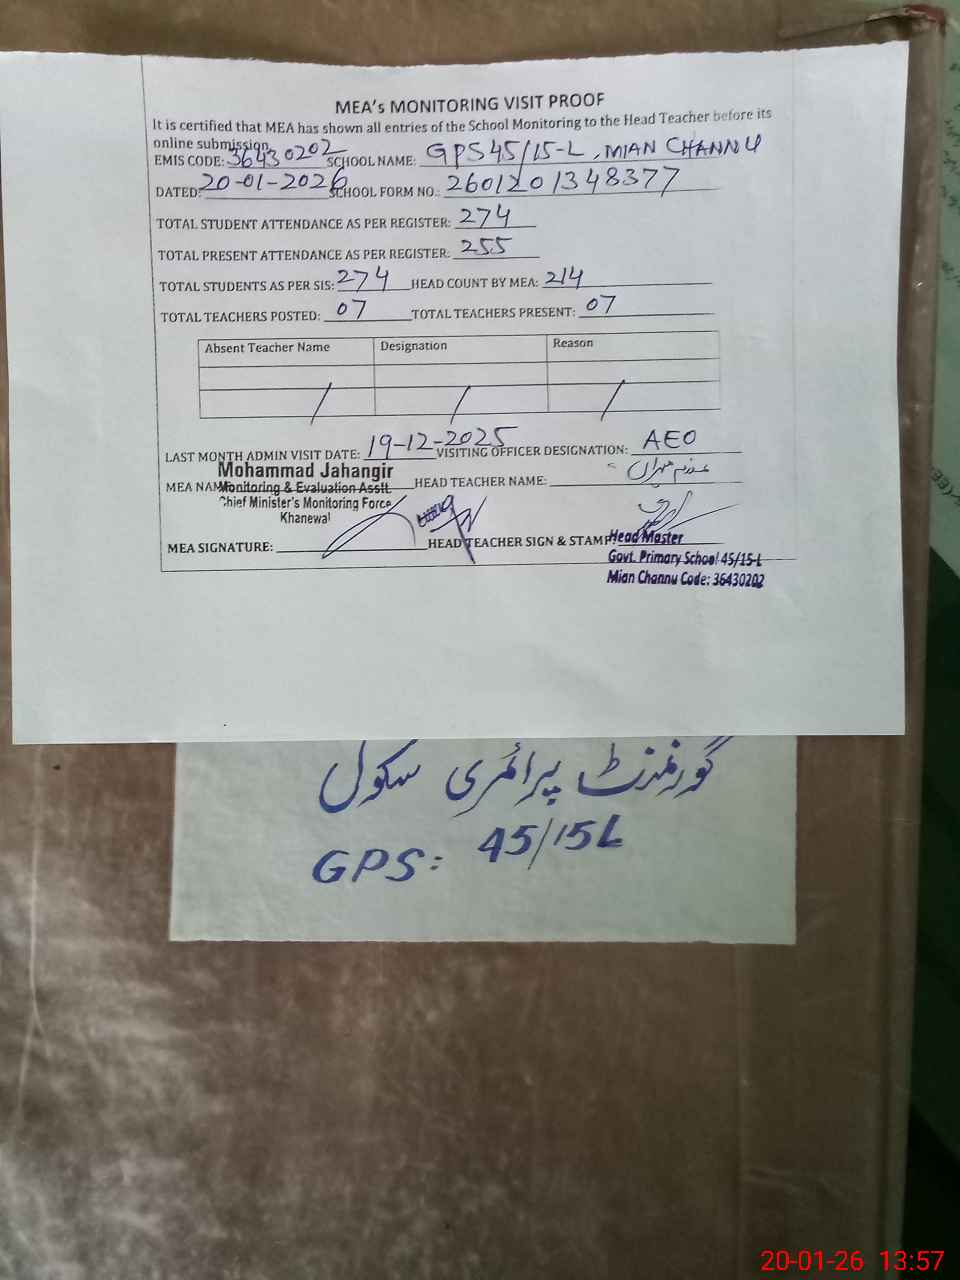 MEA's MONITORING VISIT PROOF
It is certified that MEA has shown all entries of the School Monitoring to the Head Teacher before its
online submission.
EMIS CODE: 36430202 SCHOOL NAME: GPS 45/15-L, MIAN CHANNU
DATED: 20-01-2026 SCHOOL FORM NO.: 2601201348377
TOTAL STUDENT ATTENDANCE AS PER REGISTER: 274
TOTAL PRESENT ATTENDANCE AS PER REGISTER: 255
TOTAL STUDENTS AS PER SIS: 274 HEAD COUNT BY MEA: 214
TOTAL TEACHERS POSTED: 07 TOTAL TEACHERS PRESENT: 07
Absent Teacher Name Designation Reason
/ / /
LAST MONTH ADMIN VISIT DATE: 19-12-2025 VISITING OFFICER DESIGNATION: AEO
Mohammad Jahangir
MEA NAM Monitoring & Evaluation Asstt. HEAD TEACHER NAME:
Chief Minister's Monitoring Force
Khanewal
MEA SIGNATURE: HEAD TEACHER SIGN & STAMP:
Head Master
Govt. Primary School 45/15-L
Mian Channu Code: 36430202
گورنمنٹ پرائمری سکول
GPS: 45/15L
20-01-26 13:57